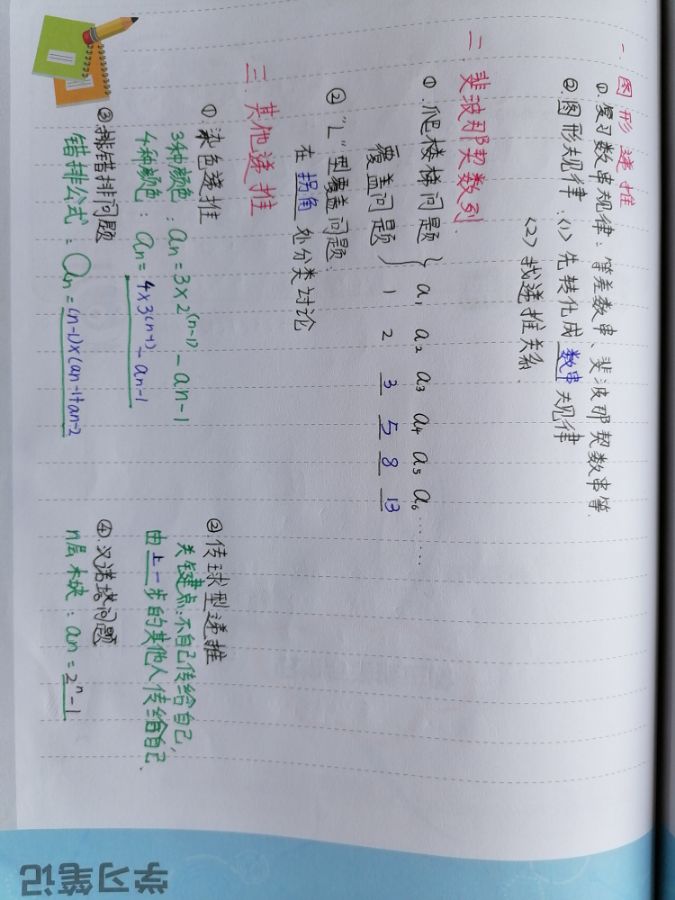 一.图形递推
①复习数串规律:等差数串、斐波那契数串等
②图形规律:(1)先转化成 数串 规律
(2)找递推关系.
二.斐波那契数列.
①.爬楼梯问题 } a1 a2 a3 a4 a5 a6 ……
覆盖问题 1 2 3 5 8 13
②"L"型覆盖问题:
在 拐角 处分类讨论
三.其他递推
①染色递推
3种颜色:an=3×2^(n-1)-an-1
4种颜色:an=4×3^(n-1)-an-1
②.传球型递推
关键点:不自己传给自己,
由上一步的其他人传给自己.
③排错排问题
错排公式:an=(n-1)×(an-1+an-2
④.汉诺塔问题
n层木块:an=2^n-1
学习笔记